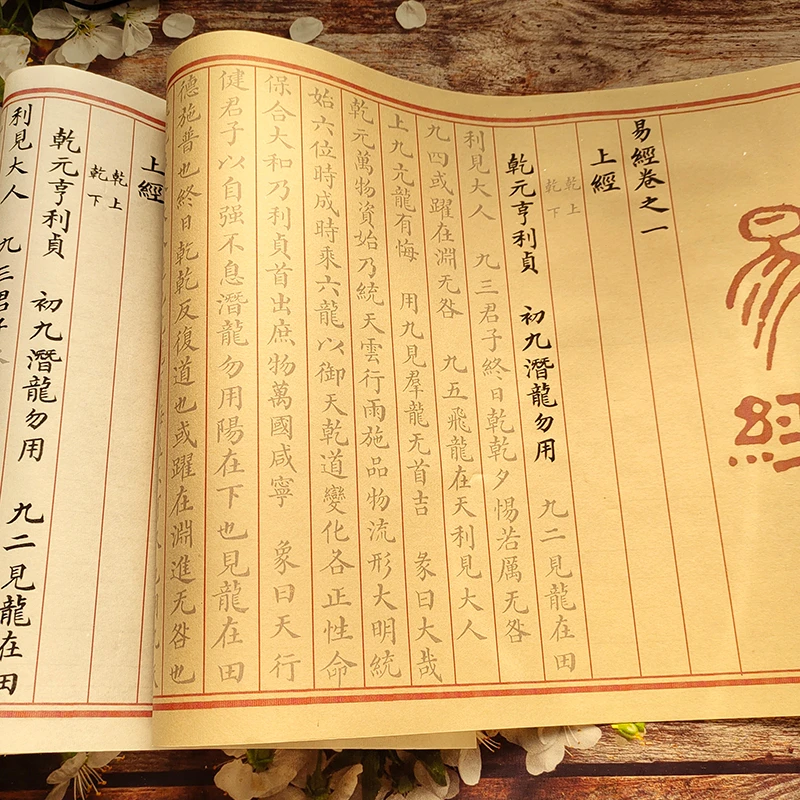 易經
易經卷之一
上經
乾上
乾下
乾元亨利貞 初九潛龍勿用 九二見龍在田
利見大人 九三君子終日乾乾夕惕若厲无咎
九四或躍在淵无咎 九五飛龍在天利見大人
上九亢龍有悔 用九見羣龍无首吉 彖曰大哉
乾元萬物資始乃統天雲行雨施品物流形大明終
始六位時成時乘六龍以御天乾道變化各正性命
保合大和乃利貞首出庶物萬國咸寧 象曰天行
健君子以自強不息潛龍勿用陽在下也見龍在田
德施普也終日乾乾反復道也或躍在淵進无咎也
上經
乾上
乾下
乾元亨利貞 初九潛龍勿用 九二見龍在田
利見大人 九三君子